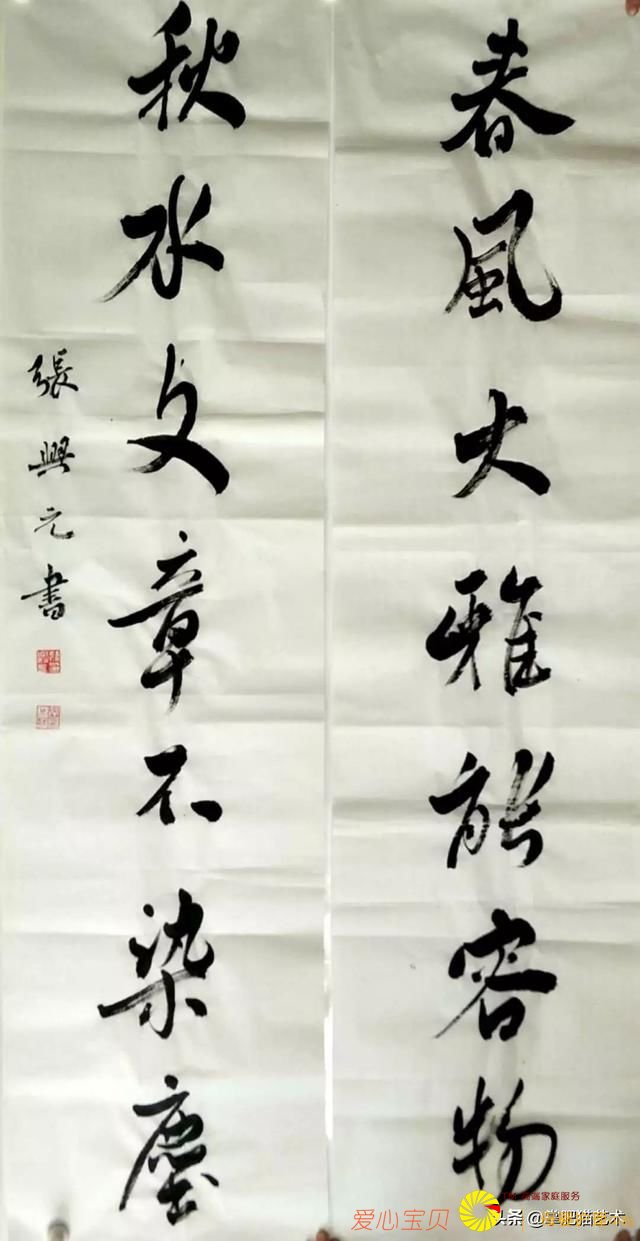 春風大雅能容物
秋水文章不染塵
張興元書
爱心宝贝
端家庭服务
头条@掌肥猫艺术